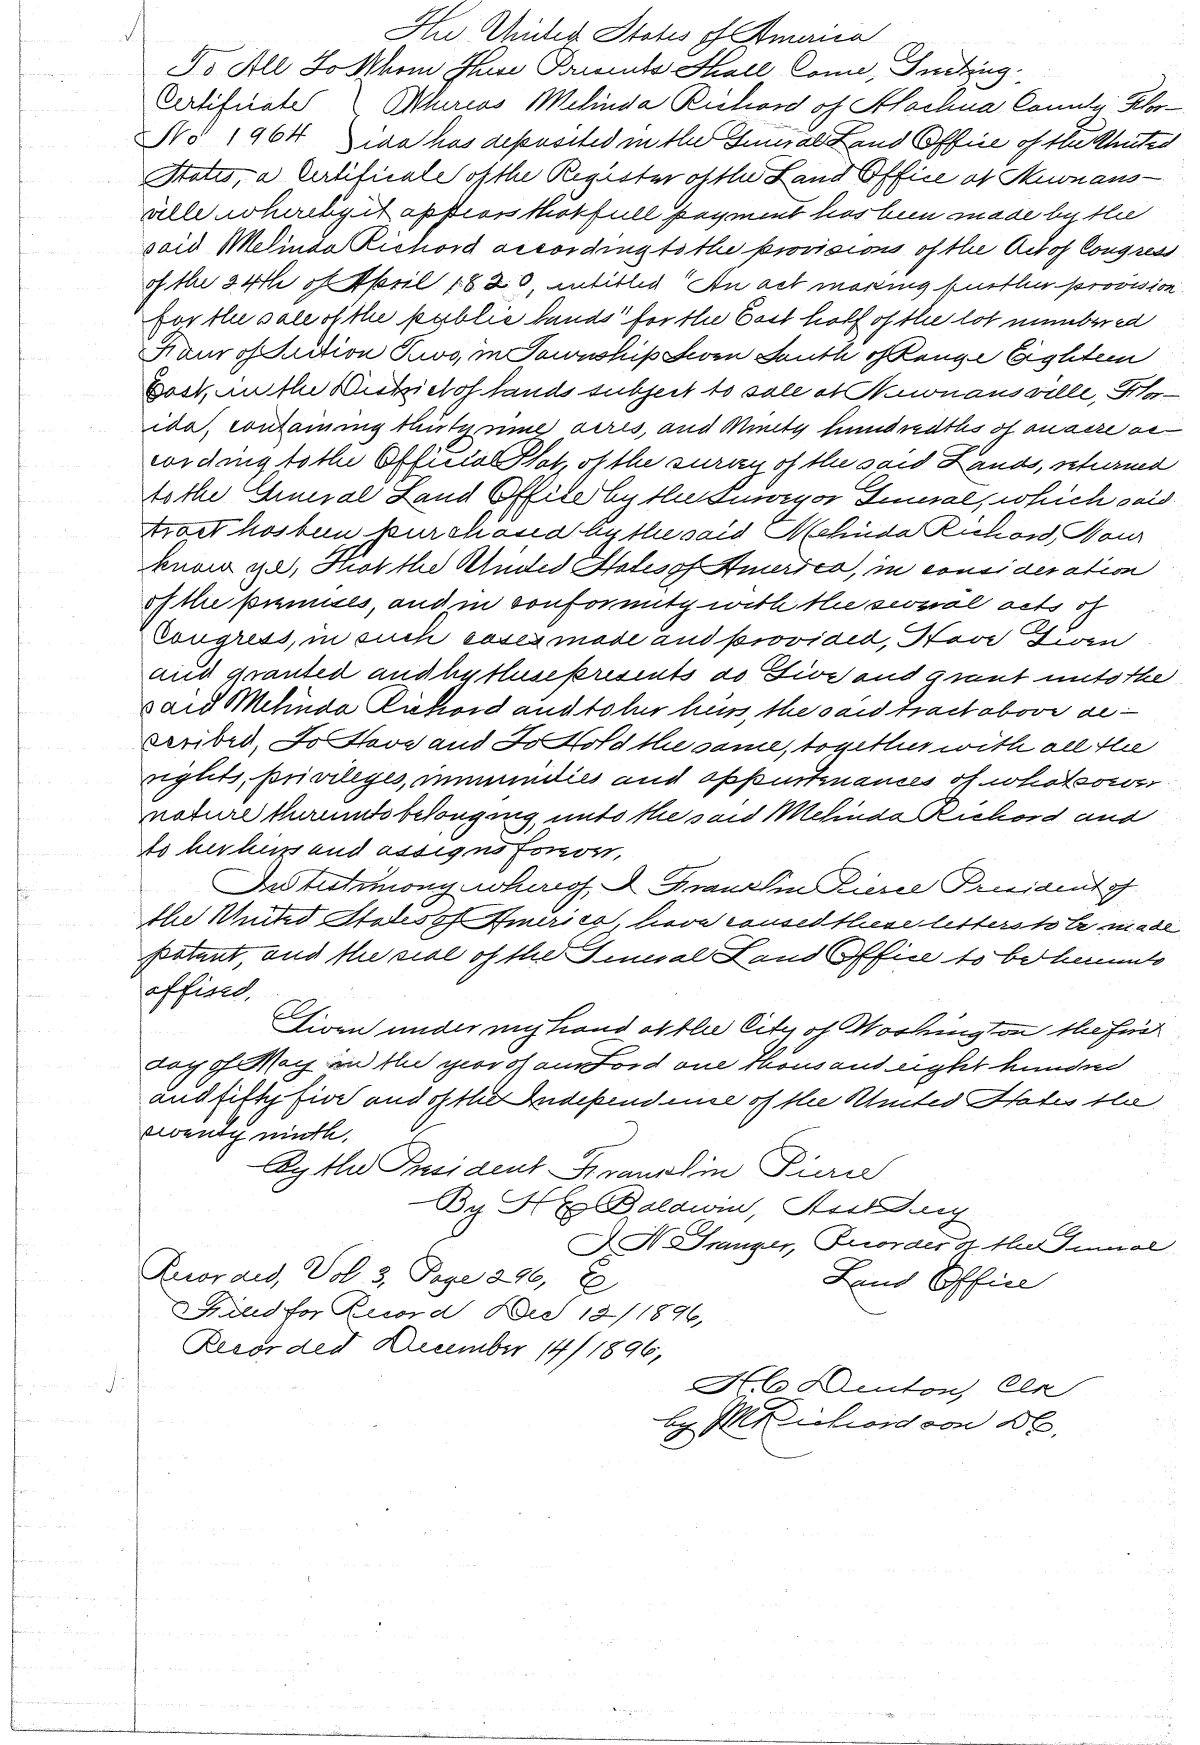 The United States of America
To All To Whom These Presents Shall Come, Greeting:
Certificate } Whereas Melinda Richard of Alachua County Flor-
No 1964 } ida has deposited in the General Land Office of the United
States, a Certificate of the Register of the Land Office at Newnans-
ville whereby it appears that full payment has been made by the
said Melinda Richard according to the provisions of the Act of Congress
of the 24th of April 1820, entitled "An act making further provision
for the sale of the public lands" for the East half of the lot numbered
Four of Section Two, in Township Seven South of Range Eighteen
East, in the District of lands subject to sale at Newnansville, Flor-
ida, containing thirty nine acres, and Ninety hundredths of an acre ac-
cording to the Official Plat, of the survey of the said Lands, returned
to the General Land Office by the Surveyor General, which said
tract has been purchased by the said Melinda Richard, Now
know ye, That the United States of America, in consideration
of the premises, and in conformity with the several acts of
Congress, in such cases made and provided, Have Given
and granted and by these presents do Give and grant unto the
said Melinda Richard and to her heirs, the said tract above de-
scribed, To Have and To Hold the same, together with all the
rights, privileges, immunities and appurtenances of whatsoever
nature thereunto belonging, unto the said Melinda Richard and
to her heirs and assigns forever.
In testimony whereof, I Franklin Pierce President of
the United States of America, have caused these letters to be made
patent, and the seal of the General Land Office to be hereunto
affixed.
Given under my hand at the City of Washington the first
day of May in the year of our Lord one thousand eight hundred
and fifty five and of the Independence of the United States the
seventy ninth.
By the President Franklin Pierce
By H E Baldwin, Asst Secy
J N Granger, Recorder of the General
Land Office
Recorded, Vol 3, Page 296,
Filed for Record Dec 12/1896,
Recorded December 14/1896,
H. C. Denton, Clk
by JM Richardson DC.